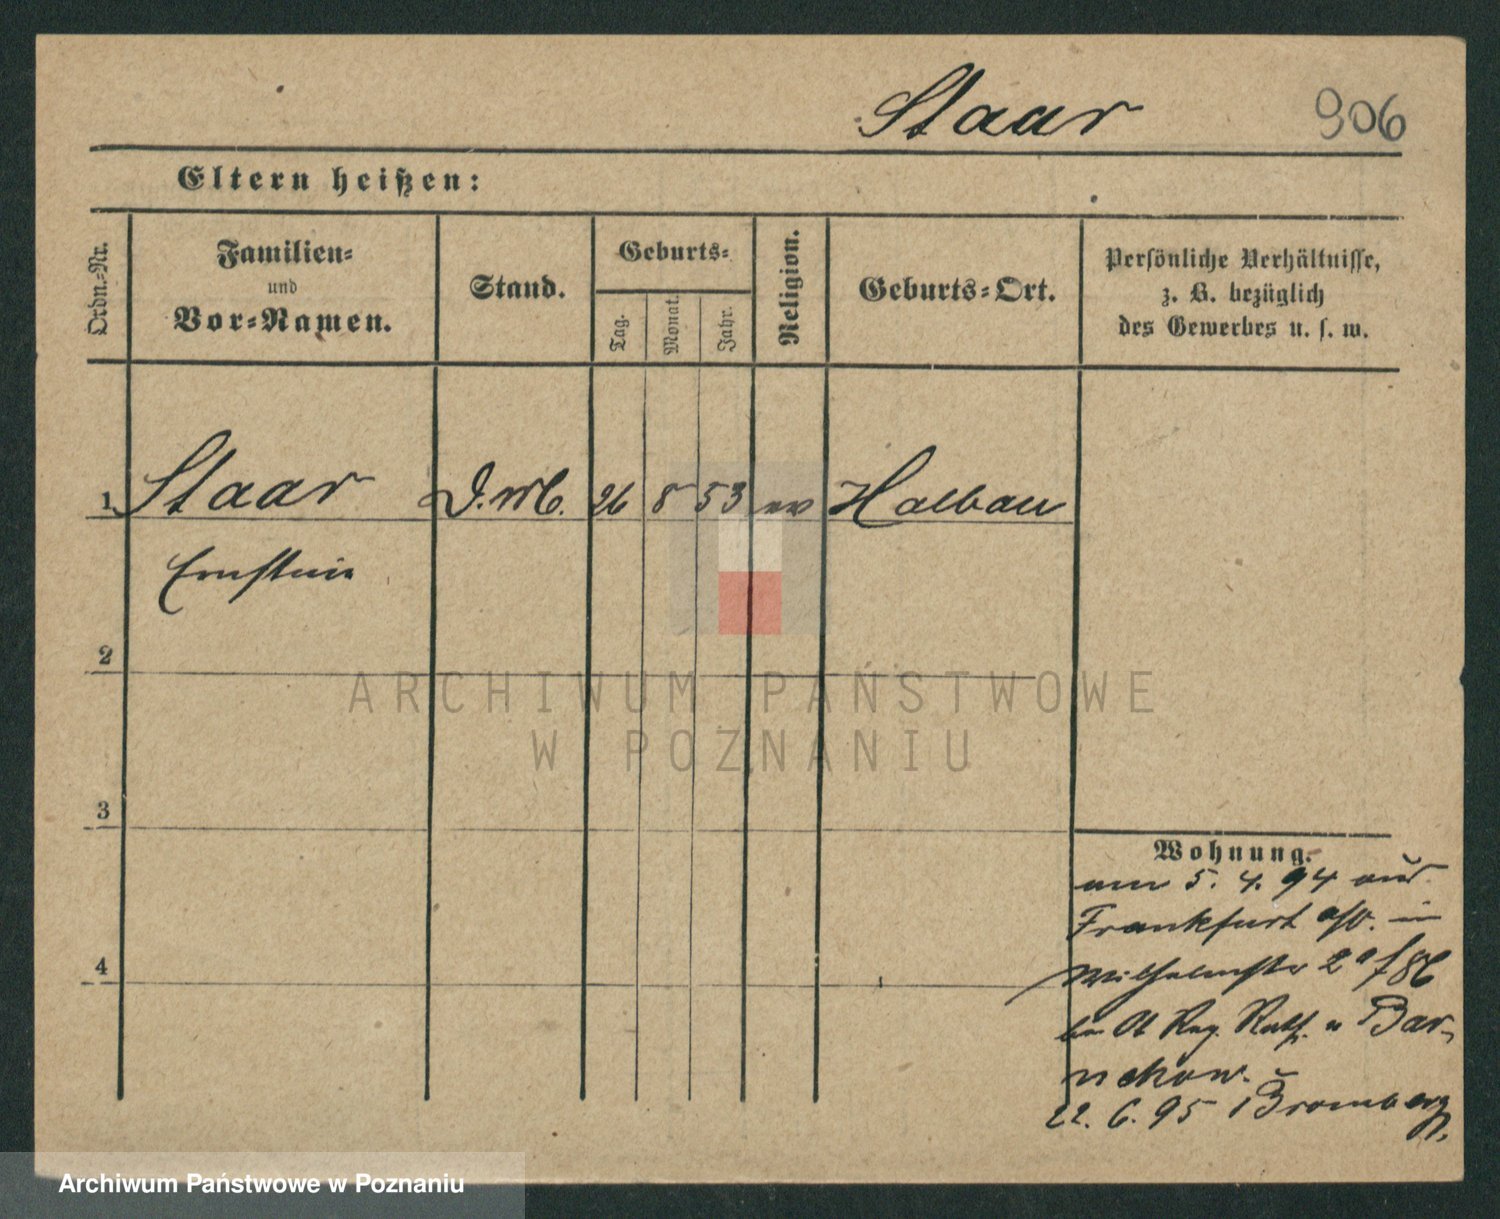 Staar 906
Eltern heißen:
Ordn.-Nr.
Familien-
und
Vor-Namen.
Stand.
Geburts-
Tag.
Monat.
Jahr.
Religion.
Geburts-Ort.
Persönliche Verhältnisse,
z. B. bezüglich
des Gewerbes u. s. w.
1 Staar D. M. 26 8 53 ev Halbau
Ernstine
2
3
4
Wohnung.
am 5. 4. 94 aus
Frankfurt a/O. in
Wilhelmstr 2a / 86
bei Ob Reg. Rath. v Bar-
nekow.
22. 6. 95 Bromberg.
ARCHIWUM PAŃSTWOWE
W POZNANIU
Archiwum Państwowe w Poznaniu